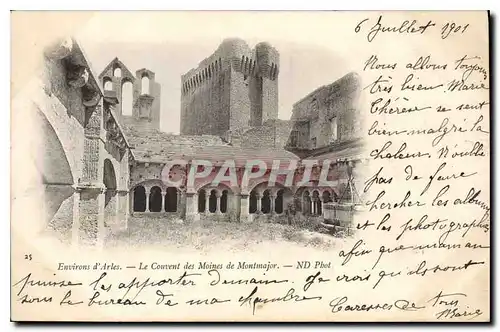 6 Juillet 1901
Nous allons toujours
très bien. Marie
Thérèse se sent
bien malgré la
chaleur. N'oublie
pas de faire
chercher les albums
et les photographies
afin que maman
puisse les apporter demain. Je crois qu'ils sont
sous le bureau de ma chambre
Caresses de tous
Marie
CPARAMA
25
Environs d'Arles. — Le Couvent des Moines de Montmajor. — ND Phot